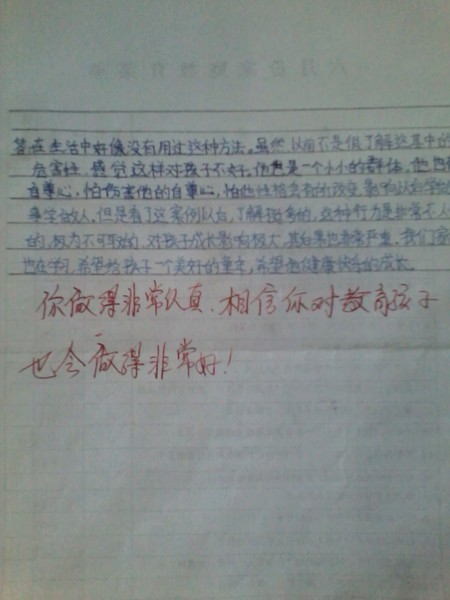 答:在生活中好像没有用过这种方法。虽然以前不是很了解这其中的
危害性,感觉这样对孩子不好。他也是一个小小的群体,他也有
自尊心,怕伤害他的自尊心,怕他性格会有所改变,影响以后学
事学做人,但是看了这案例以后,了解挺多的,这种行为是非常不人
的,极为不可取的,对孩子成长影响极大,其后果也非常严重,我们家
也在学习,希望给孩子一个美好的童年,希望他健康快乐的成长。
你做得非常认真,相信你对教育孩子
也会做得非常好!